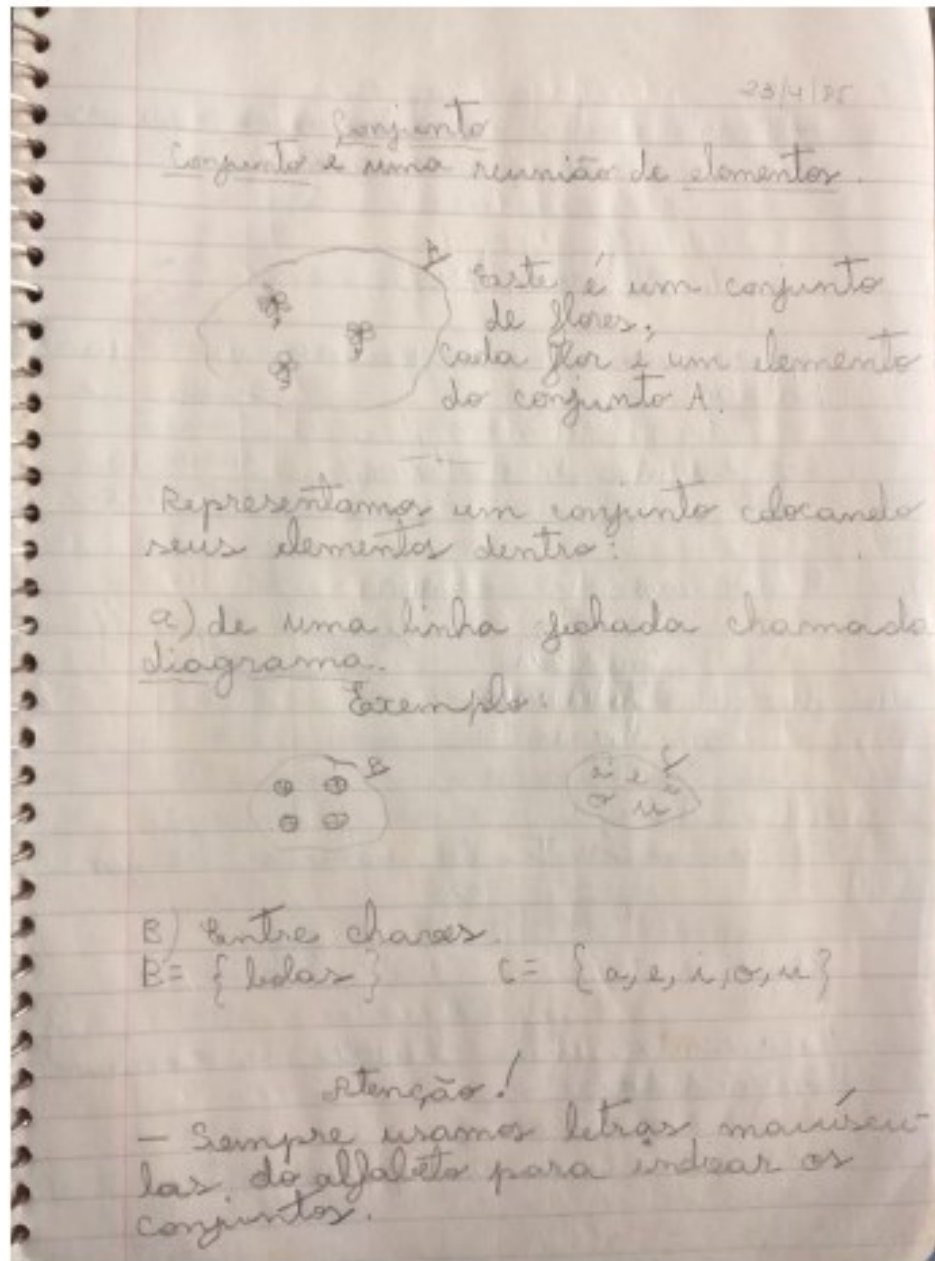 23/4/85
Conjunto
Conjunto é uma reunião de elementos.
A
Este é um conjunto
de flores.
cada flor é um elemento
do conjunto A.
Representamos um conjunto colocando
seus elementos dentro:
a) de uma linha fechada chamada
diagrama.
Exemplo:
B
C
a i e
o u
B) Entre chaves.
B= {bolas} C= {a, e, i, o, u}
Atenção!
– Sempre usamos letras maiúscu-
las do alfabeto para indicar os
conjuntos.